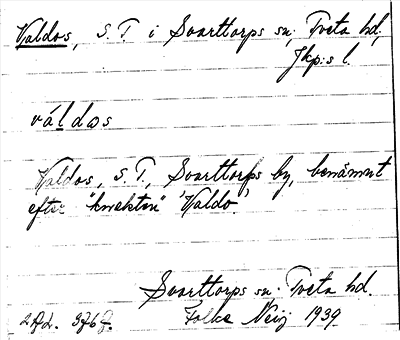 Valdos, S.T. i Svarttorps sn, Tveta hd,
Jkp:s l.
váldɷs
Valdos, S.T., Svarttorps by, benämnt
efter "knekten" 'Valdo.'
Svarttorps sn. Tveta hd.
Folke Neij 1939.